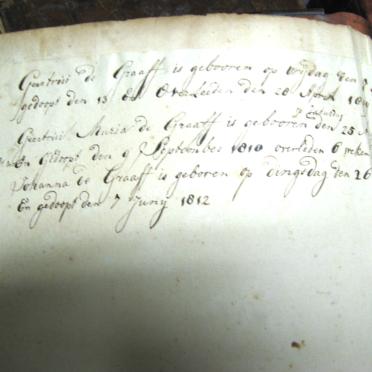 Geertrui de Graaff is gebooren op vrijdag den
gedoopt den 13 En Overleeden den 28 April
Zaturdag
Geertrui Maria de Graaff is gebooren den 23
En Gedoopt den 9 September 1810 overleden 6 weken
Johanna de Graaff is geboren op dingsdag den 26
En gedoopt den 7 Junij 1812